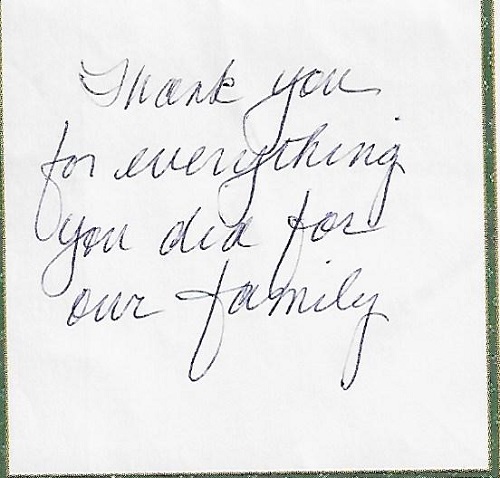 Thank you
for everything
you did for
our family